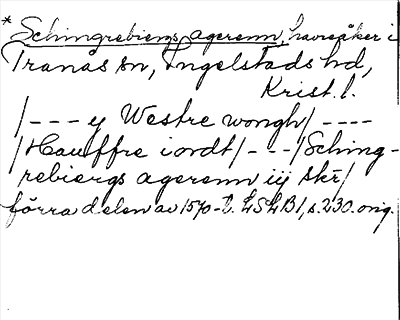 * Schingrebiergs agerenn, havreåker i
Tranås sn, Ingelstads hd,
Krist. l.
/--- y Westre wongh/----
/Hauffre iordt/---/Sching-
rebiergs agerenn iij skr/
förra delen av 1570-t. LSLB1, s. 230. orig.